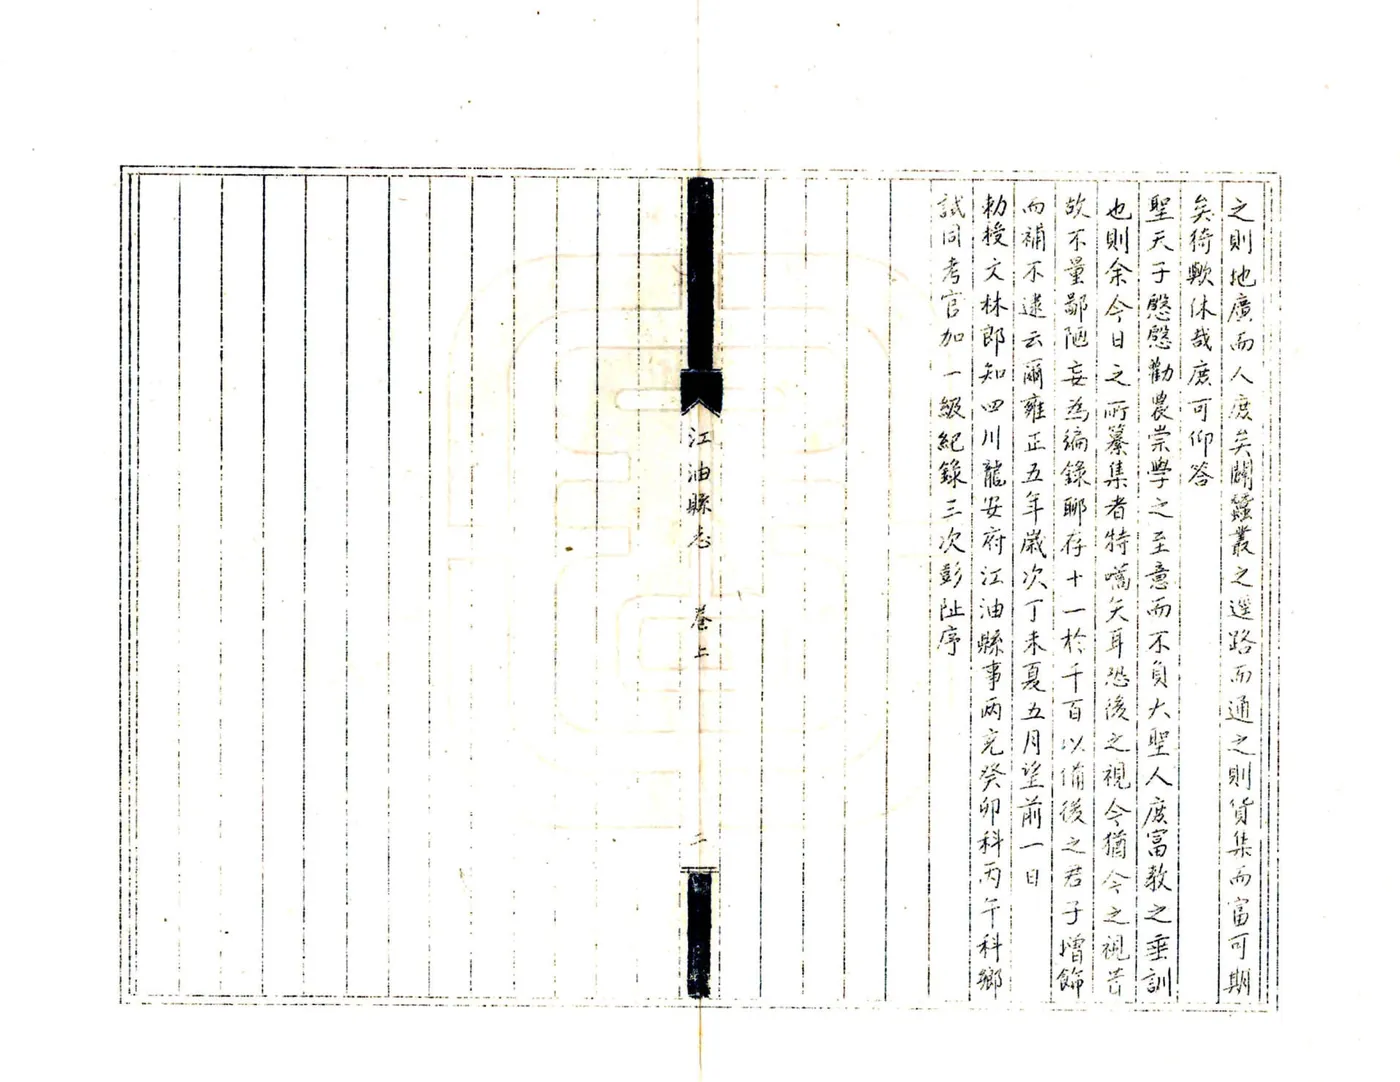 之則地廣而人庶矣闢蠶叢之遥路而通之則貨集而富可期
矣猗歟休哉庶可仰答
聖天子慇慇勸農崇學之至意而不負大聖人庶富教之垂訓
也則余今日之所纂集者特嚆矢耳恐後之視今猶今之視昔
故不量鄙陋妄為編錄聊存十一於千百以備後之君子增飾
而補不逮云爾雍正五年歲次丁未夏五月望前一日
勅授文林郎知四川龍安府江油縣事両充癸卯科丙午科鄉
試同考官加一級紀錄三次彭阯序
江油縣志 卷上 二